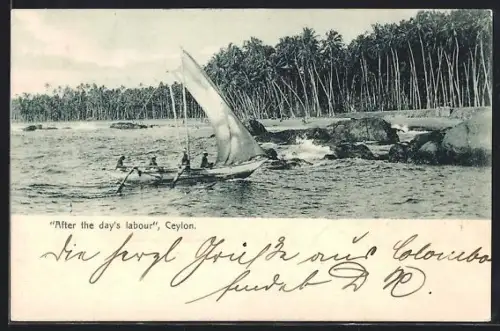 "After the day's labour", Ceylon.
Die herzl Grüße aus Colombo
sendet D